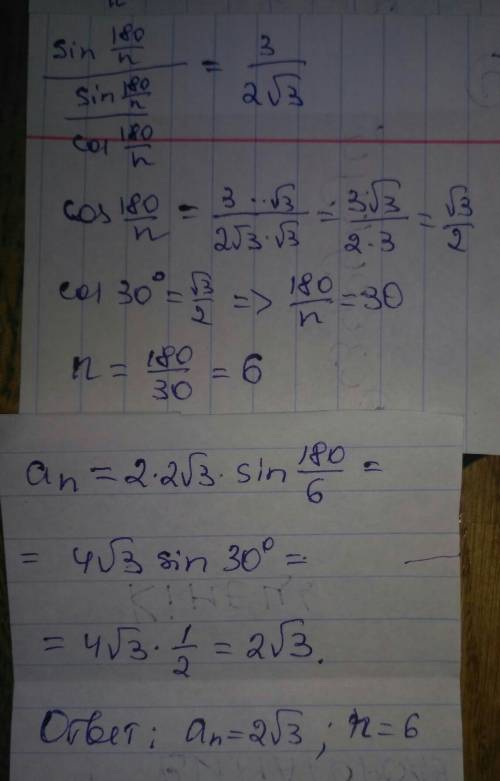 sin 180/n / (sin 180/n / cos 180/n) = 3 / 2√3
cos 180/n = 3 · √3 / 2√3 · √3 = 3√3 / 2·3 = √3/2
cos 30° = √3/2 => 180/n = 30
n = 180/30 = 6
aₙ = 2·2√3 · sin 180/6 =
= 4√3 sin 30° =
= 4√3 · 1/2 = 2√3.
Ответ: aₙ = 2√3 ; n = 6